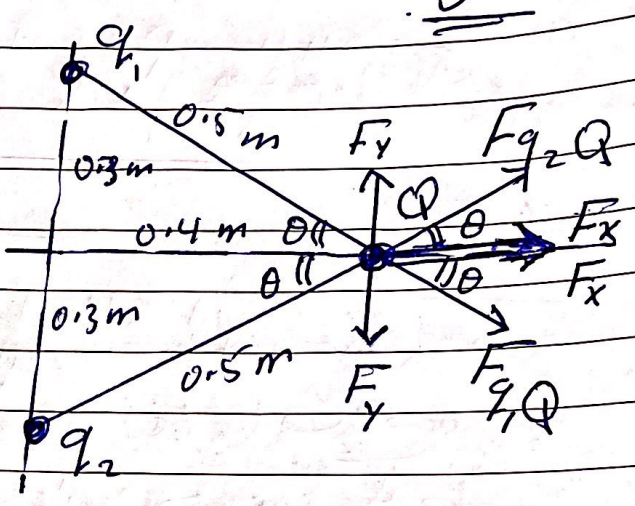 q₁
0.5 m
0.3m
F_y
F_q₂Q
Q
θ
F_x
0.4 m
θ
θ
θ
F_x
0.3m
0.5 m
F_y
F_q₁Q
q₂